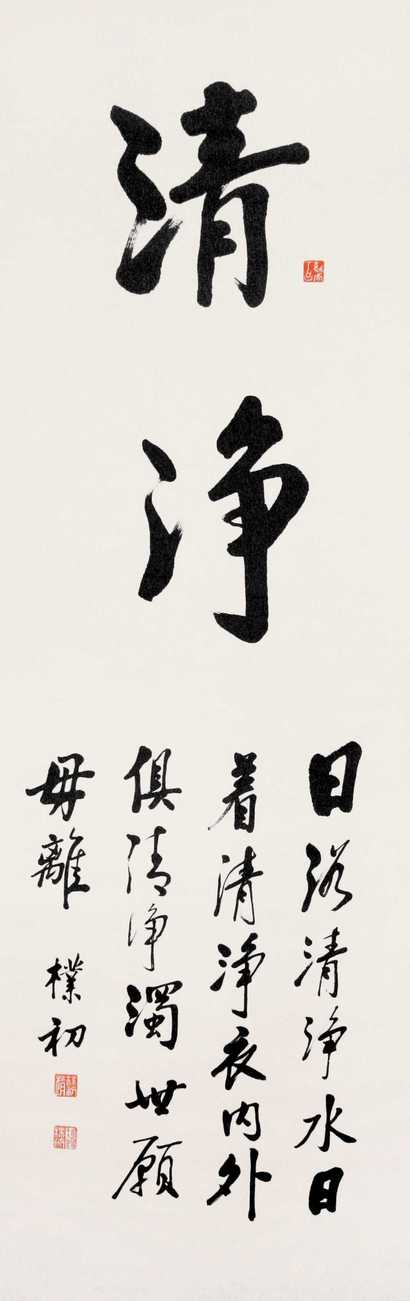 清
净
日浴清净水日
着清净衣内外
俱清净濁世願
毋離 樸初